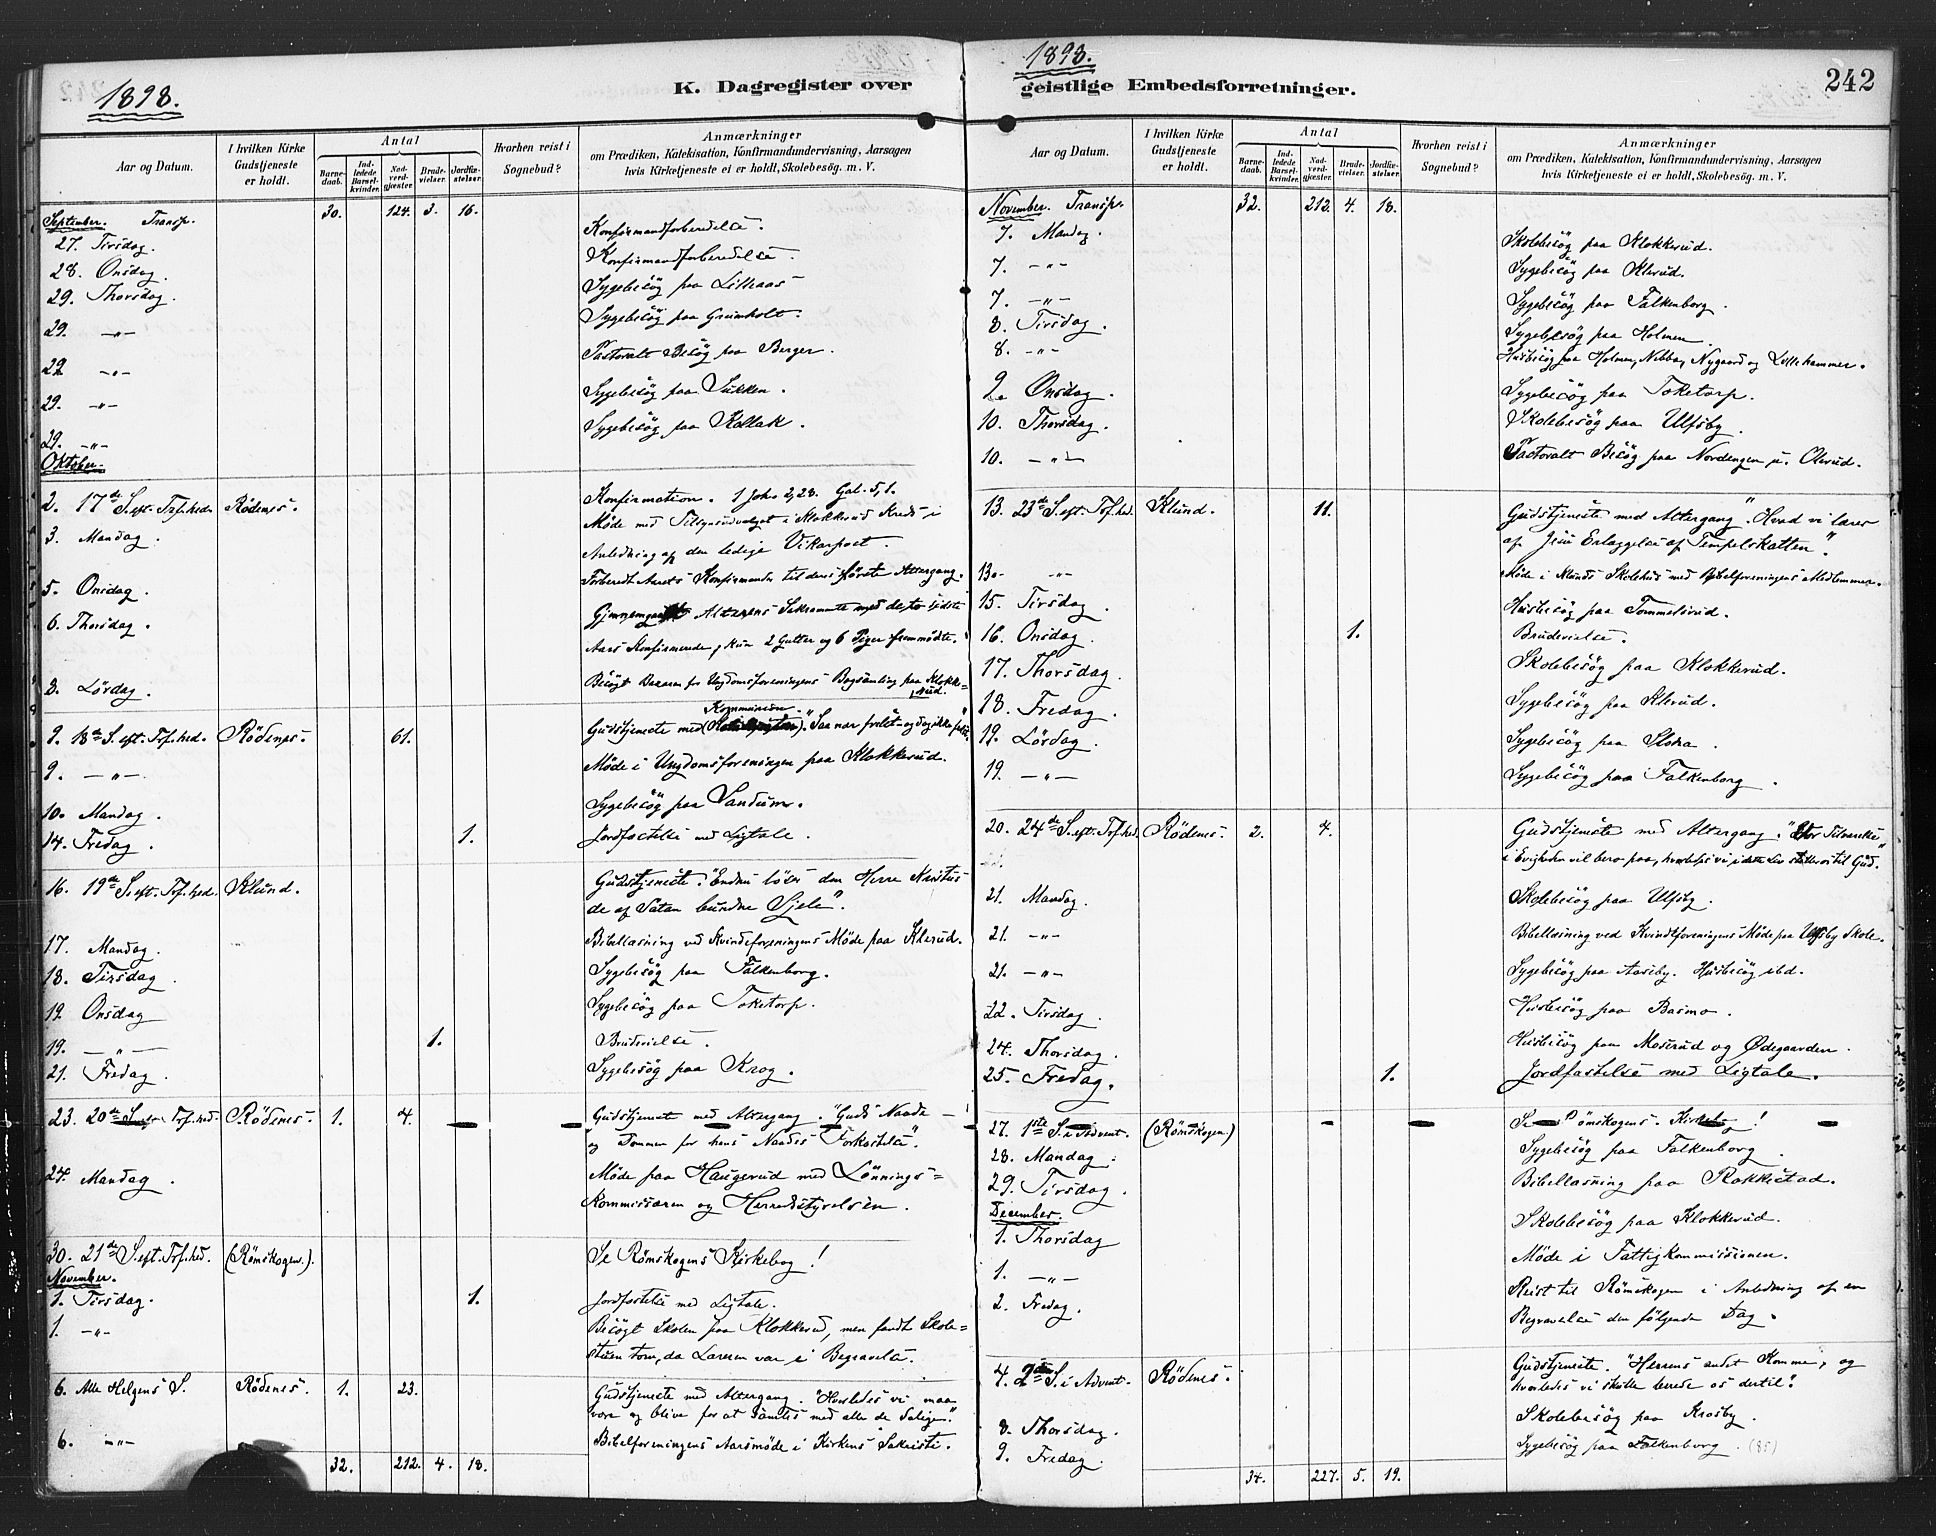 1898.
K. Dagregister over
Aar og Datum.
I hvilken Kirke Gudstjeneste er holdt.
Antal
Barnedaab.
Indledede Barselkvinder.
Nadverdgjæster.
Brudevielser.
Jordfæstelser.
Hvorhen reist i Sognebud?
Anmærkninger
om Prædiken, Katekisation, Konfirmandundervisning, Aarsagen
hvis Kirketjeneste ei er holdt, Skolebesög. m. V.
September. Transp. 30. 124. 3. 16.
27. Tirsdag. Konfirmandforberedelse.
28. Onsdag. Konfirmandforberedelse.
29. Thorsdag. Sygebesög paa Lillaas
29. -"- Sygebesög paa Grimholt.
29 -"- Pastoralt Besög paa Berger.
29. -"- Sygebesög paa Sukken.
29. -"- Sygebesög paa Kollak.
Oktober.
2. 17de S. eft. Tref.hed. Rödenes. Konfirmation. 1 Joh. 2,28. Gal. 5,1.
3. Mandag. Möde med Tilsynsudvalget i Klokkerud Kreds i
Anledning af den ledige Vikarpost.
5. Onsdag. Forberedt Aarets Konfirmander til deres förste Altergang.
6. Thorsdag. Altarens Sakramente med de to sidste
Aars Konfirmerede, kun 2 Gutter og 6 Piger fremmödte.
8. Lördag. Besögt Bazaren for Ungdomsforeningens Bogsamling paa Klokke=
rud.
9. 18de S. eft. Tref.hed. Rödenes. 61. Gudstjeneste med Kommunion.
9. -"- Möde i Ungdomsforeningen paa Klokkerud.
10. Mandag. Sygebesög paa Sandum.
14. Fredag. 1. Jordfæstelse med Ligtale.
16. 19de S. eft. Tref.hed. Klund. Gudstjeneste. "Endnu löser den Herre Kristus
de af Satan bundne Sjele".
17. Mandag. Bibellæsning ved Kvindeforeningens Möde paa Klerud.
18. Tirsdag. Sygebesög paa Falkenborg.
19. Onsdag Sygebesög paa Toketorp.
19. -"- 1. Brudevielse.
21. Fredag. Sygebesög paa Krog.
23. 20de S. eft. Tref.hed. Rödenes. 1. 4. Gudstjeneste med Altergang. "Guds Naade —
og Dommen for hans Naades Forkastelse".
24. Mandag. Möde paa Haugerud med Lönnings=
kommissæren og Herredsstyrelsen.
30. 21de S. eft. Tref.hed. (Römskogen.). Se Römskogens Kirkebog!
November.
1. Tirsdag. 1. Jordfæstelse med Ligtale.
1. -"- Besögt Skolen paa Klokkerud, men fandt Skole=
stuen tom, da Læreren var i Begravelse.
6. Alle Helgens S. Rödenes. 1. 23. Gudstjeneste med Altergang. "Hvorledes vi maa
være og blive for at samles med alle de Salige."
6. -"- Bibelforeningens Aarsmöde i Kirkens Sakristi.
32. 212. 4. 18.
1898.
geistlige Embedsforretninger.
242
Aar og Datum.
I hvilken Kirke Gudstjeneste er holdt.
Antal
Barnedaab.
Indledede Barselkvinder.
Nadverdgjæster.
Brudevielser.
Jordfæstelser.
Hvorhen reist i Sognebud?
Anmærkninger
om Prædiken, Katekisation, Konfirmandundervisning, Aarsagen
hvis Kirketjeneste ei er holdt, Skolebesög. m. V.
November. Transp. 32. 212. 4. 18.
7. Mandag. Skolebesög paa Klokkerud.
7. -"- Sygebesög paa Klerud.
7. -"- Sygebesög paa Falkenborg.
8. Tirsdag. Sygebesög paa Holmen.
8. -"- Husbesög paa Holmen, Nibba, Nygaard og Lillehammer.
9. Onsdag. Sygebesög paa Toketorp.
10. Thorsdag. Skolebesög paa Ulfsby.
10. -"- Pastoralt Besög paa Nordengen u. Olerud.
13. 23de S. eft. Tref.hed. Klund. 11. Gudstjeneste med Altergang. "Hvad vi lærer
af Jesu Erlæggelse af Tempelskatten".
13. -"- Möde i Klunds Skolehus med Bibelforeningens Medlemmer.
15. Tirsdag. Husbesög paa Tommelsrud.
16. Onsdag. 1. Brudevielse.
17. Thorsdag. Skolebesög paa Klokkerud.
18. Fredag. Sygebesög paa Klerud.
19. Lördag. Sygebesög paa
19. -"- Sygebesög paa Falkenborg.
20. 24de S. eft. Tref.hed. Rödenes. 2. 4. Gudstjeneste med Altergang. "Vor Tilværelse
i Evigheden vil bero paa, hvorledes vi i dette Liv stiller os til Gud."
21. Mandag. Skolebesög paa Ulfsby.
21. -"- Bibellæsning ved Kvindeforeningens Möde paa Ulfsby Skole.
21. -"- Sygebesög paa Aaseby. Husbesög ibd.
22. Tirsdag. Husbesög paa Basmo.
24. Thorsdag. Husbesög paa Moserud og Ødegaarden.
25. Fredag. 1. Jordfæstelse med Ligtale.
27. 1ste S. i Advent. (Römskogen.) Se Römskogens Kirkebog!
28. Mandag. Sygebesög paa Falkenborg.
29. Tirsdag. Bibellæsning paa Rakkestad.
December.
1. Thorsdag Skolebesög paa Klokkerud.
1. -"- Möde i Fattigkommissionen.
2. Fredag. Reist til Römskogen i Anledning af en
Begravelse den fölgende Dag.
4. 2den S. i Advent. Rödenes. Gudstjeneste. "Herrens andet Komme, og
hvorledes vi skulle berede os dertil".
8. Thorsdag. Skolebesög paa Krosby.
9. Fredag. Sygebesög paa Falkenborg. (85)
34. 227. 5. 19.